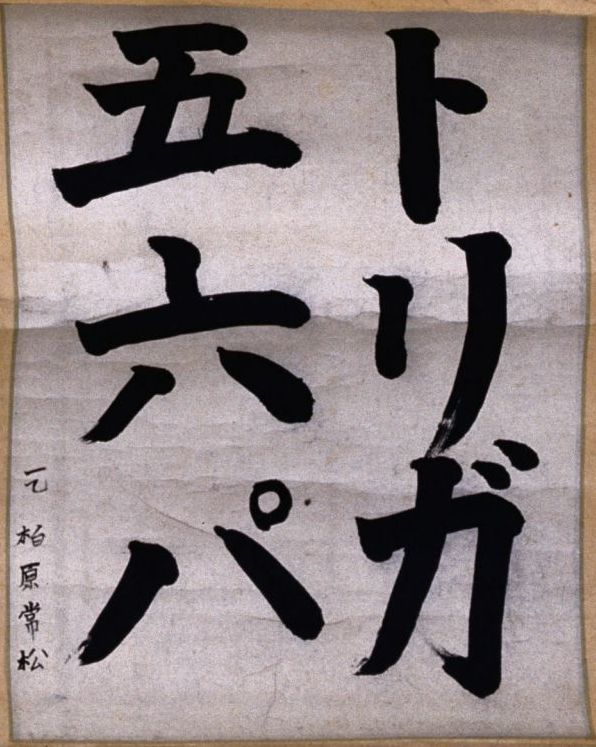 トリガ
五六パ
一乙 柏原常松